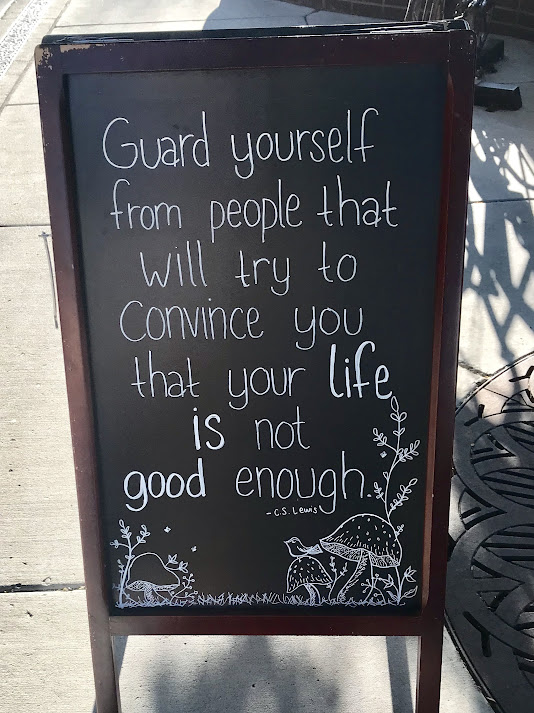 Guard yourself
from people that
will try to
convince you
that your life
is not
good enough.
- C.S. Lewis